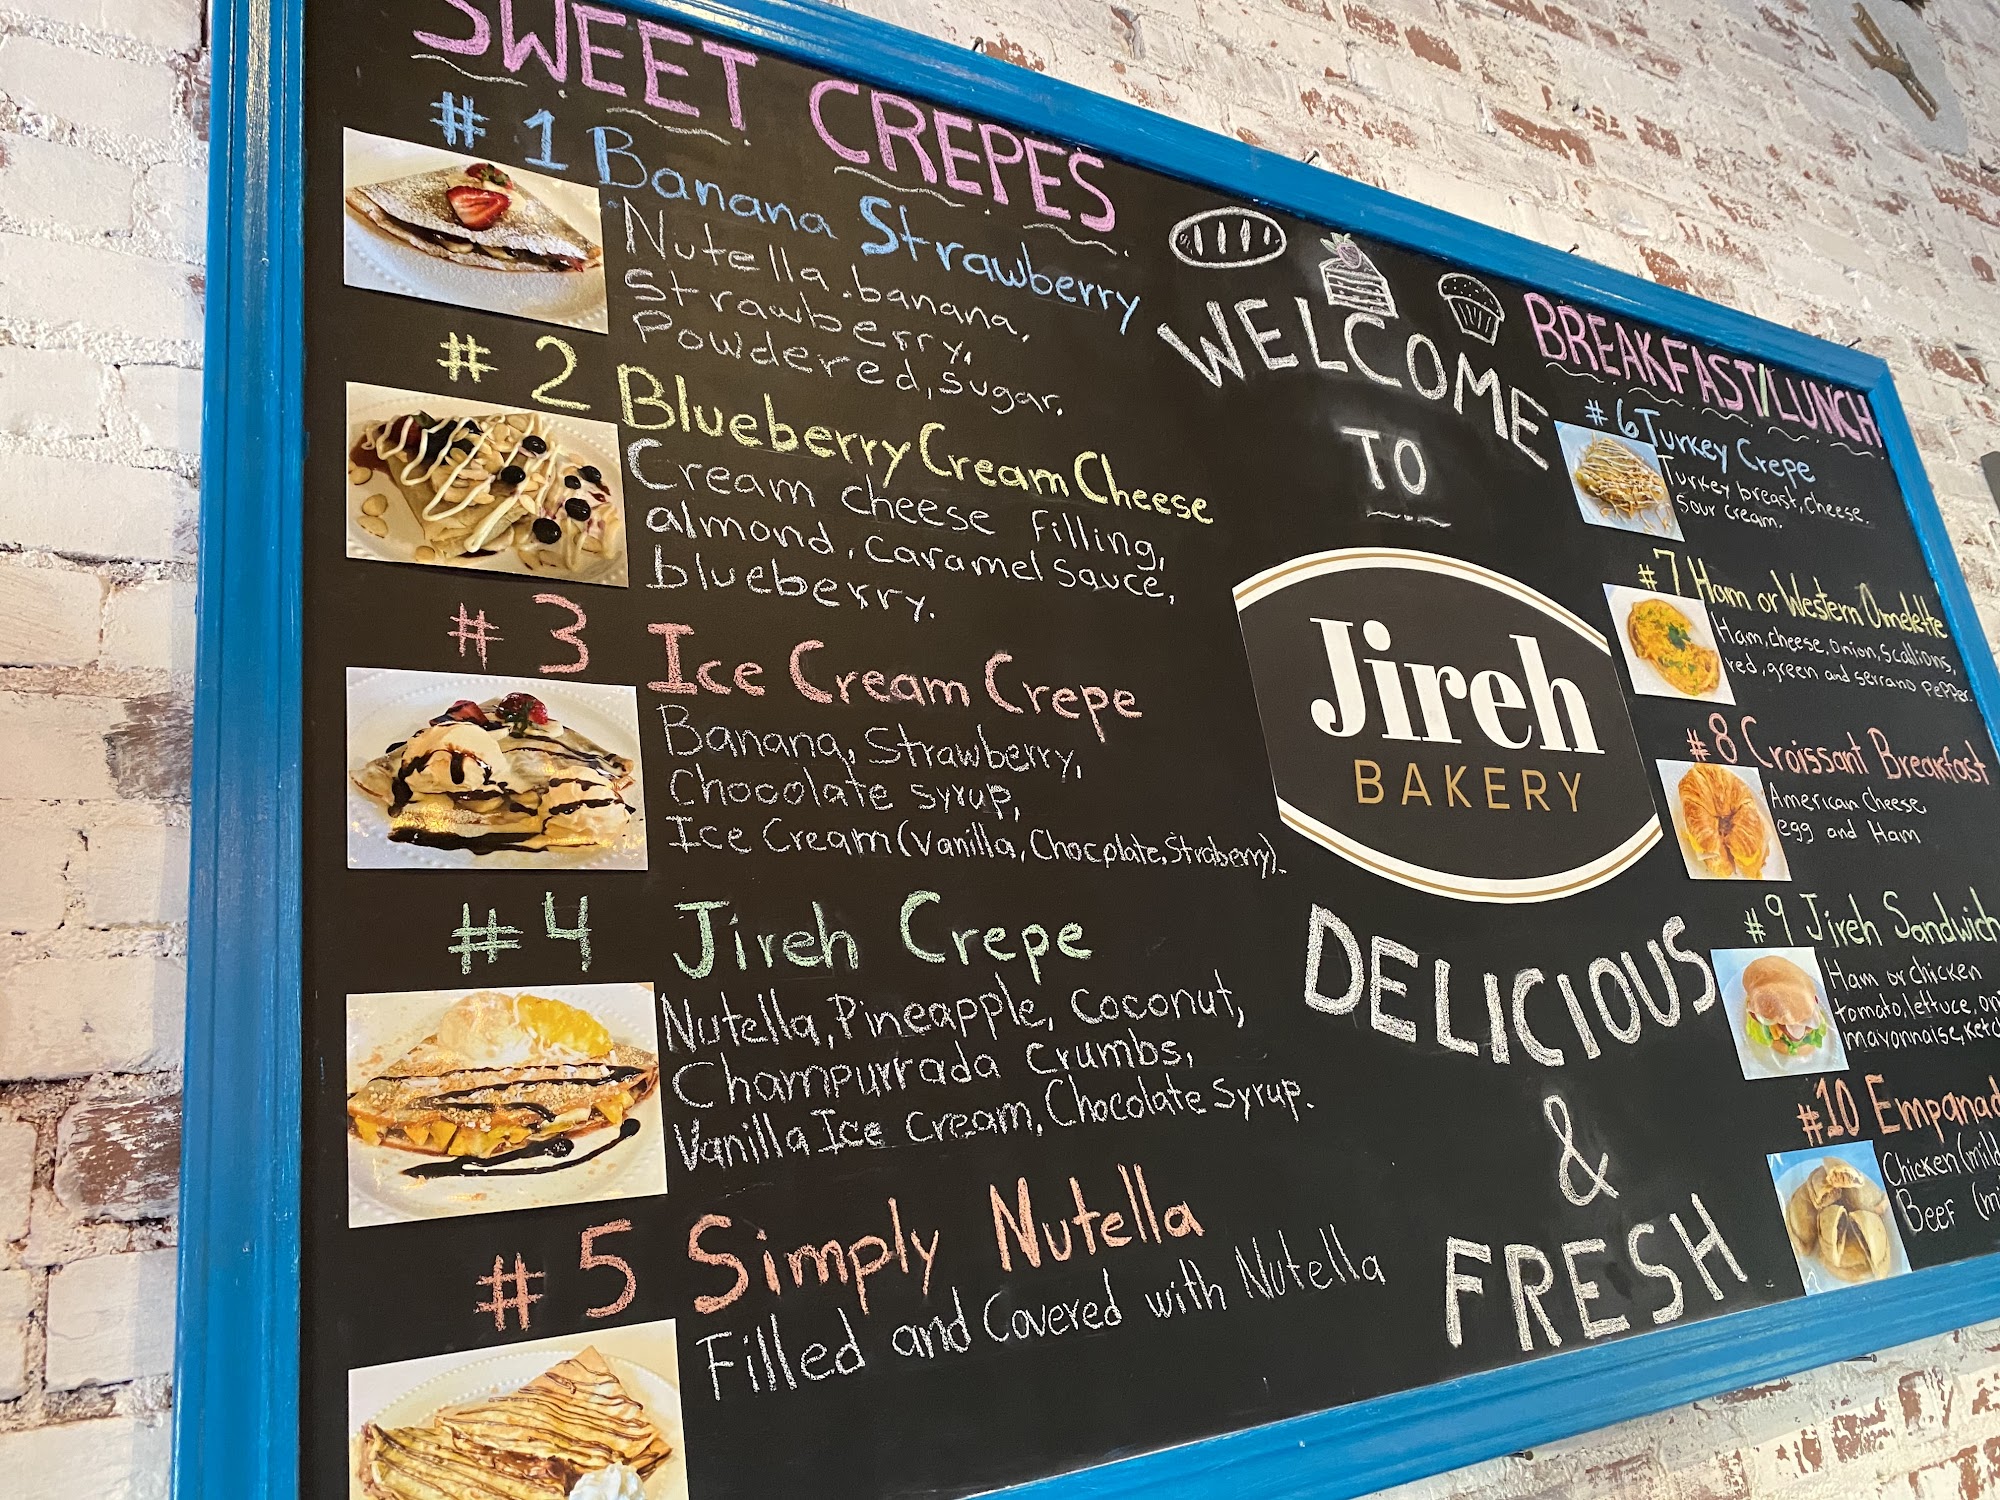 SWEET CREPES
# 1 Banana Strawberry
Nutella. banana,
Strawberry,
Powdered, sugar.
# 2 Blueberry Cream Cheese
Cream cheese filling,
almond, caramel sauce,
blueberry.
# 3 Ice Cream Crepe
Banana, Strawberry,
Chocolate syrup,
Ice Cream (Vanilla, Chocplate, Straberry).
#4 Jireh Crepe
Nutella, Pineapple, Coconut,
Champurrada Crumbs,
Vanilla Ice Cream, Chocolate Syrup.
#5 Simply Nutella
Filled and Covered with Nutella
WELCOME
TO
Jireh
BAKERY
DELICIOUS
&
FRESH
BREAKFAST/LUNCH
#6 Turkey Crepe
Turkey breast, Cheese.
Sour cream.
#7 Ham or Western Omelette
Ham, cheese, Onion, Scallions,
red, green and serrano pepper.
#8 Croissant Breakfast
American Cheese,
egg and Ham
#9 Jireh Sandwich
Ham or chicken
tomato, lettuce,
mayonnaise,
#10
Chicken
Beef